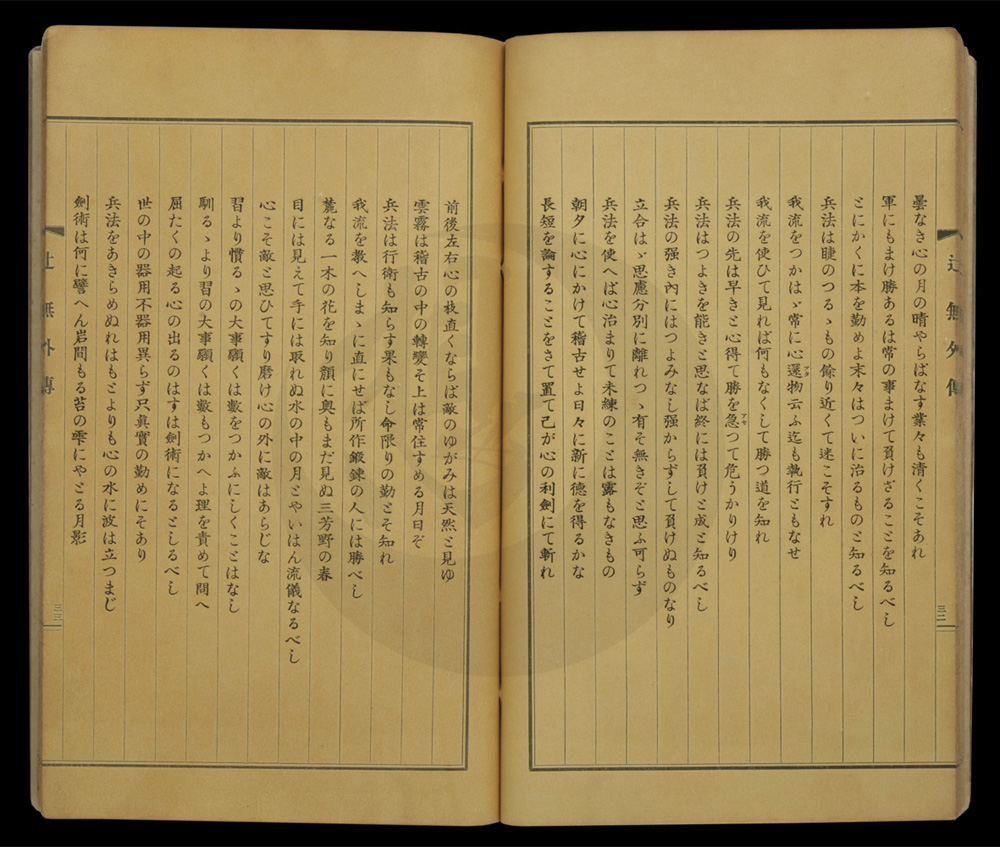 曇なき心の月の晴やらばなす業々も清くこそあれ
軍にもまけ勝あるは常の事まけて負けざることを知るべし
とにかくに本を勤めよ末々はついに治るものと知るべし
兵法は睫のつるゝもの餘り近くて迷こそすれ
我流をつかはゞ常に心還物云ふ迄も執行ともなせ
我流を使ひて見れば何もなくして勝つ道を知れ
兵法の先は早きと心得て勝を急つて危うかりけり
アセ
兵法はつよきを能きと思なば終には負けと成と知るべし
兵法の强き內にはつよみなし强からずして負けぬものなり
立合はゞ思慮分別に離れつゝ有そ無きぞと思ふ可らず
兵法を使へば心治まりて未練のことは露もなきもの
朝夕に心にかけて稽古せよ日々に新に德を得るかな
長短を論することをさて置て己が心の利劍にて斬れ
辻無外傳
三二
前後左右心の枝直くならば敵のゆがみは天然と見ゆ
雲霧は稽古の中の轉變そ上は常住すめる月日ぞ
兵法は行衛も知らす果もなし命限りの勤とそ知れ
我流を敎へしまゝに直にせば所作鍛鍊の人には勝べし
麓なる一木の花を知り顏に奧もまだ見ぬ三芳野の春
目には見えて手には取れぬ水の中の月とやいはん流儀なるべし
心こそ敵と思ひてすり磨け心の外に敵はあらじな
習より慣るゝの大事願くは數をつかふにしくことはなし
馴るゝより習の大事願くは數もつかへよ理を責めて問へ
屈たくの起る心の出るのはすは劍術になるとしるべし
世の中の器用不器用異らず只眞實の勤めにそあり
兵法をあきらめぬれはもとよりも心の水に波は立つまじ
劍術は何に譬へん岩間もる苔の雫にやとる月影
辻無外傳
三三